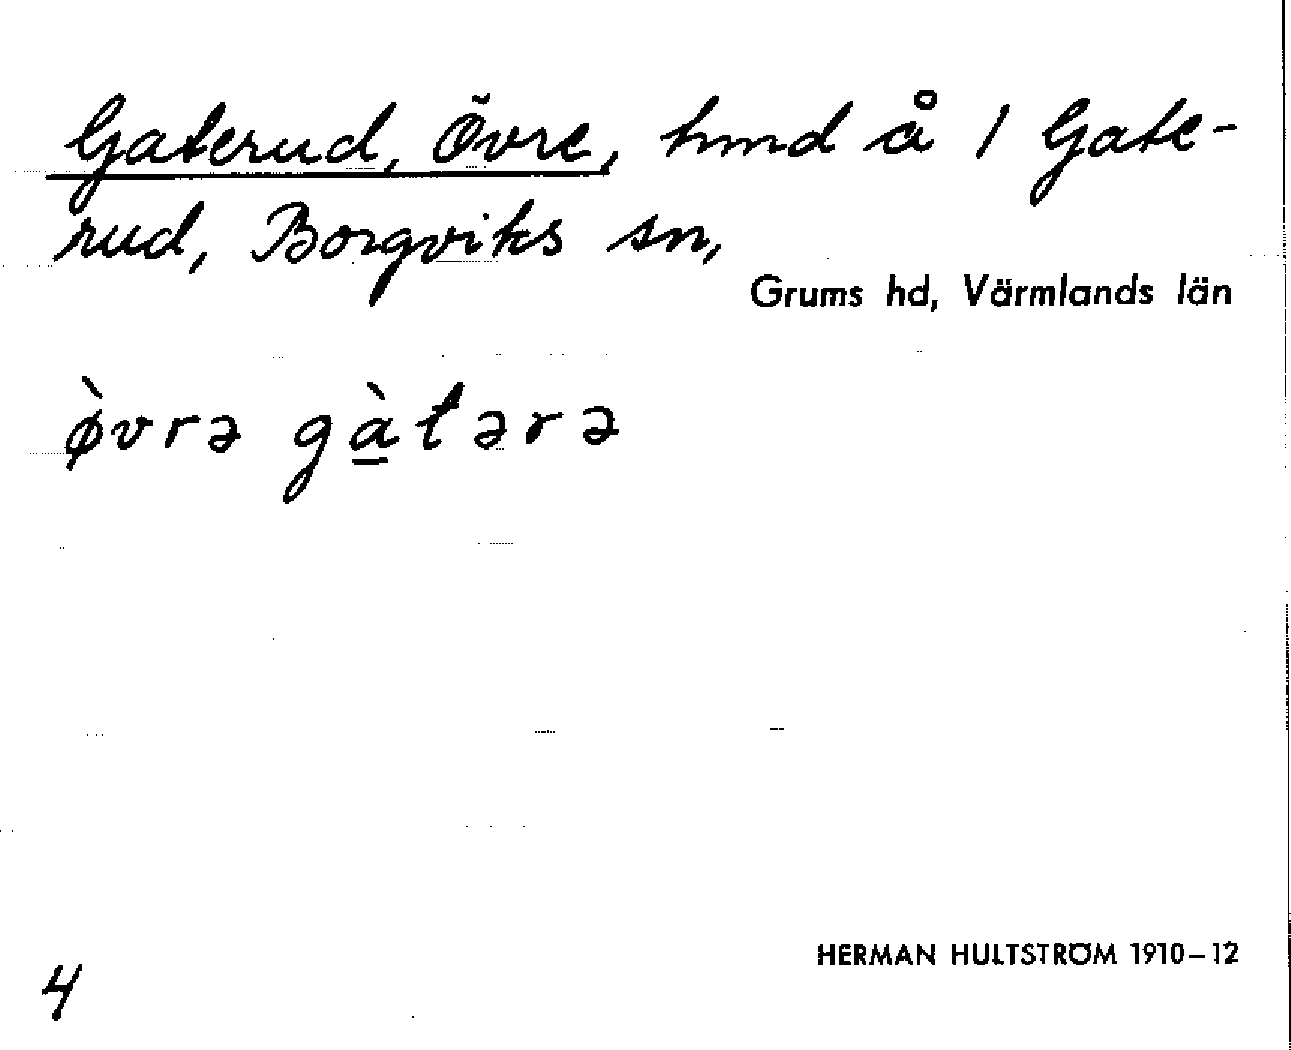 Gaterud, Övre, hmd å 1 Gate-
rud, Borgviks sn,
Grums hd, Värmlands län
ø̀vrə gà̱tərə
HERMAN HULTSTRÖM 1910–12
4